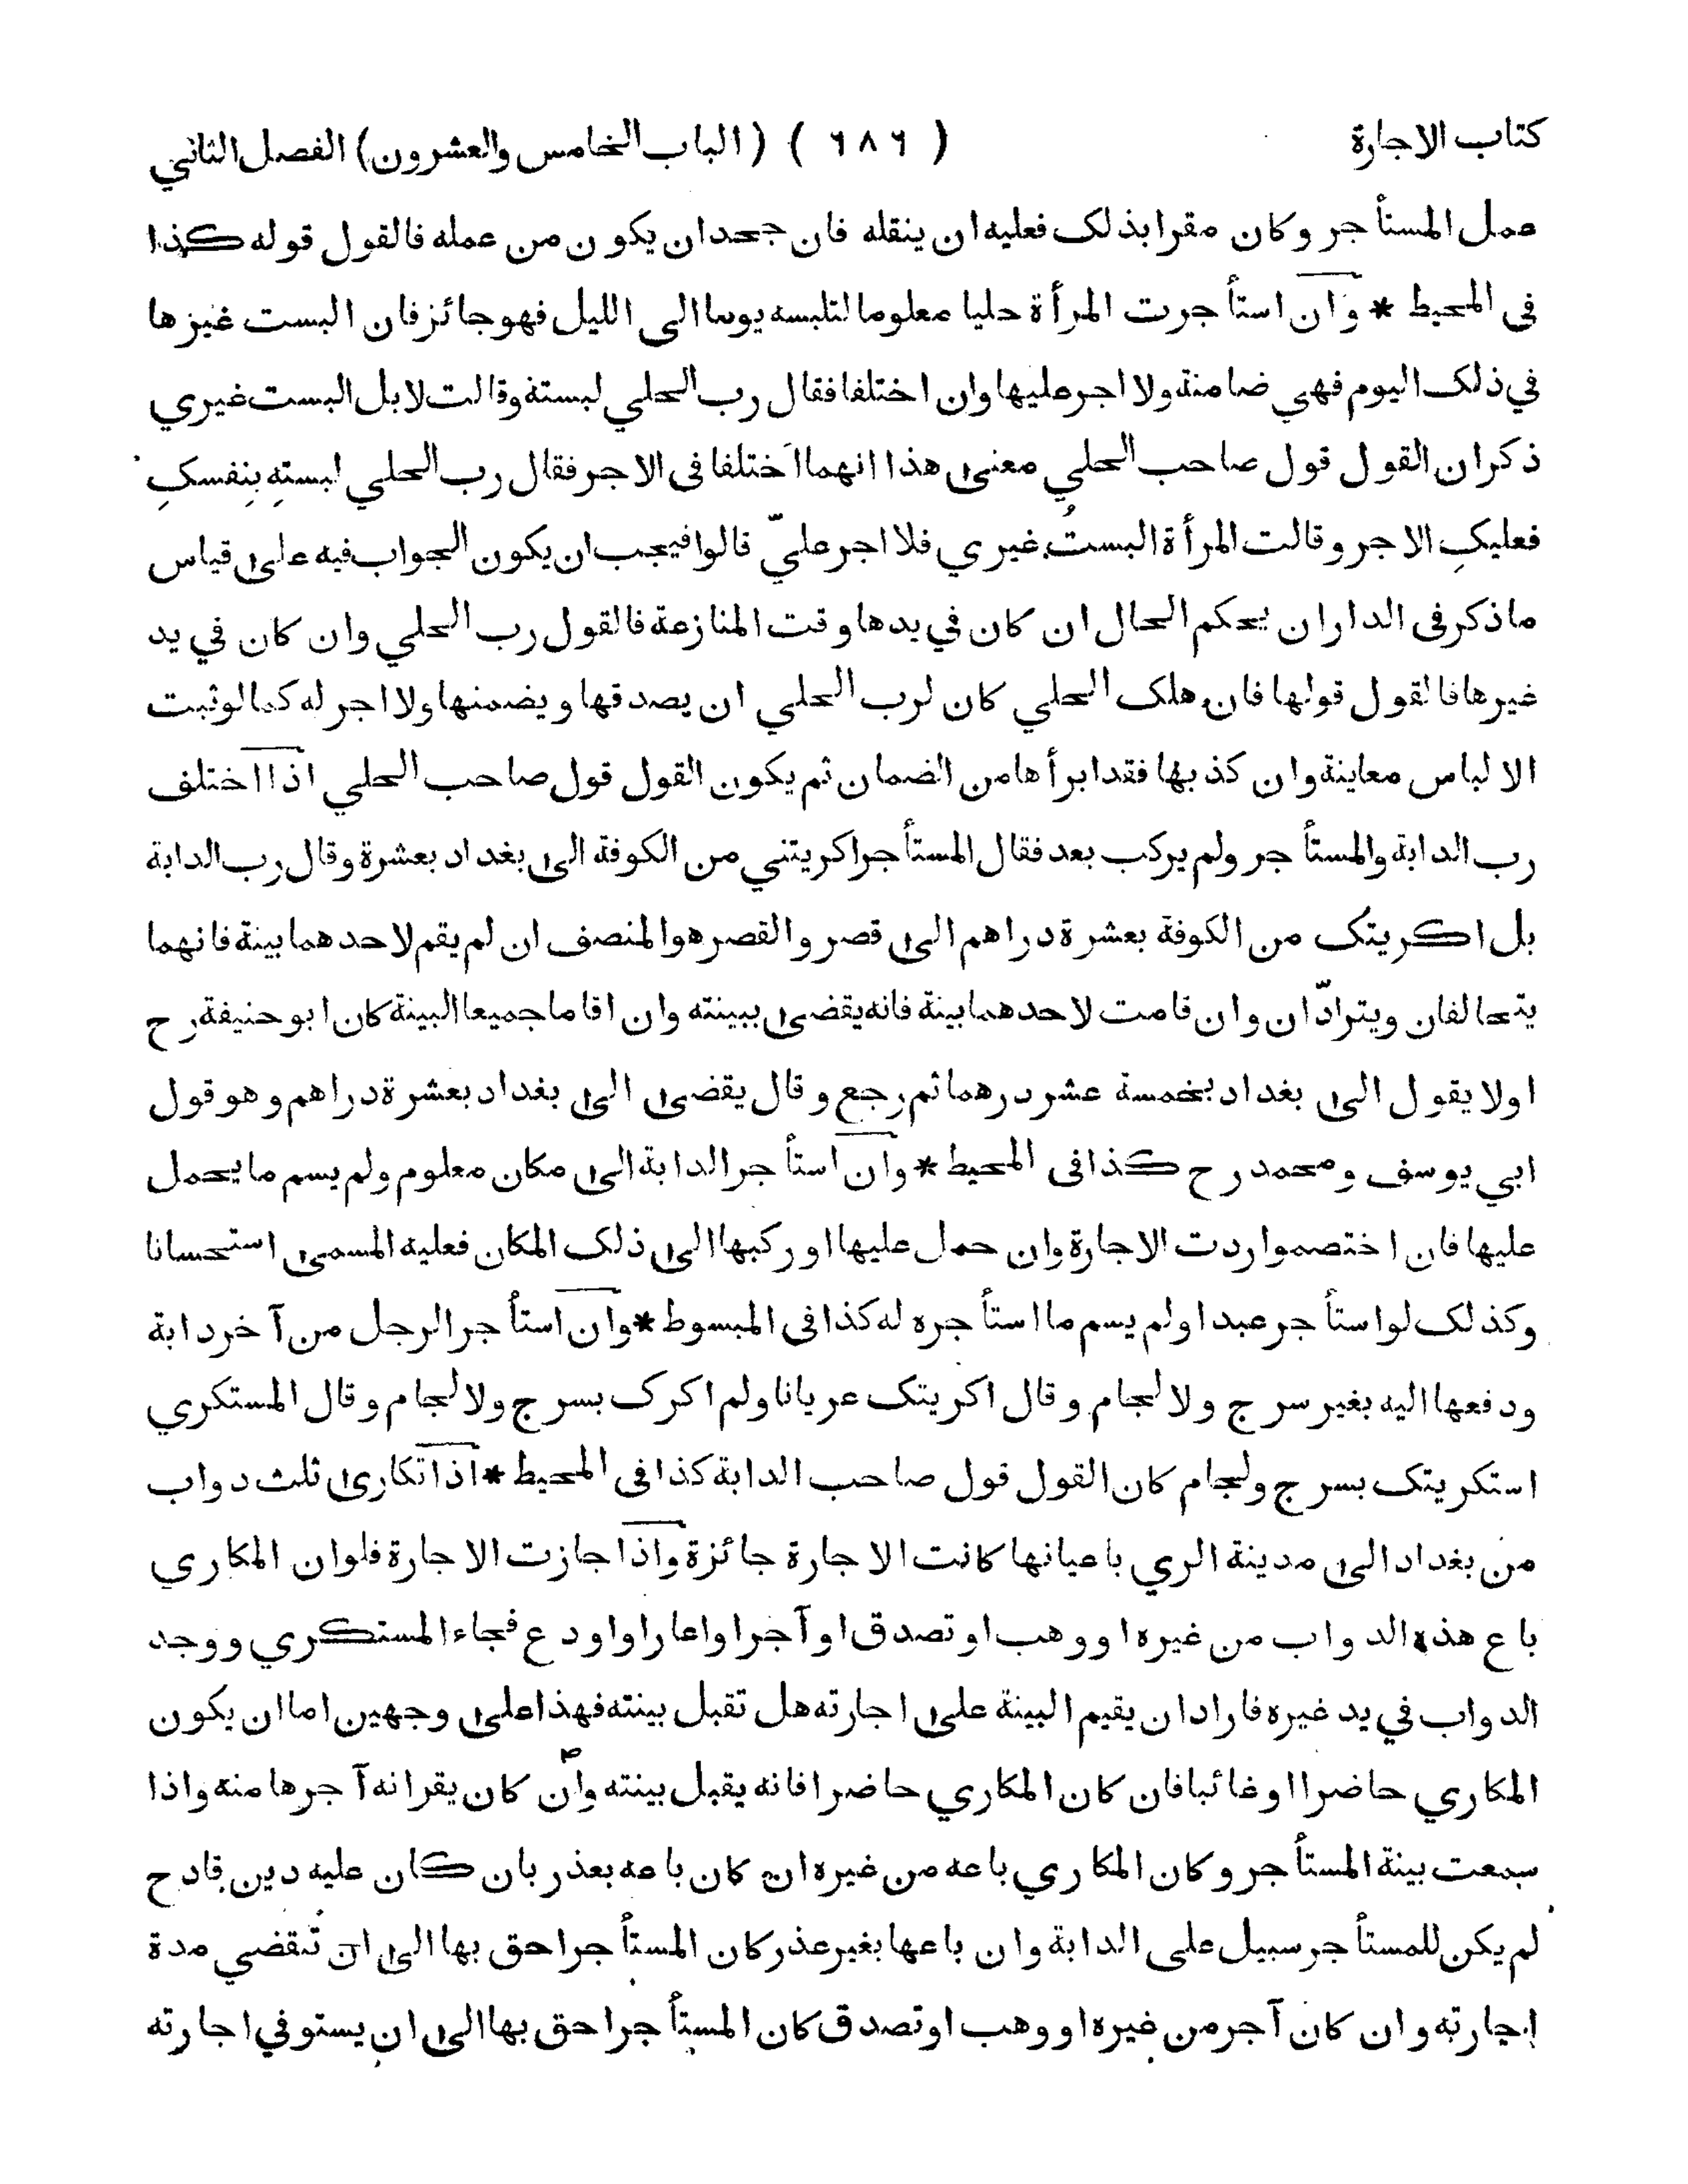 كتاب الاجارة ( ٦٨٦ ) (الباب الخامس والعشرون) الفصل الثاني
عمل المستأجر وكان مقرا بذلك فعليه ان ينقله فان جحد ان يكون من عمله فالقول قوله كذا
فى المحيط * وان استأجرت المرأة حليا معلوما لتلبسه يوما الى الليل فهو جائز فان البست غيرها
في ذلك اليوم فهي ضامنة ولا اجر عليها وان اختلفا فقال رب الحلي لبستة وقالت لا بل البست غيري
ذكر ان القول قول صاحب الحلي معنى هذا انهما اختلفا فى الاجر فقال رب الحلي لبستِهِ بنفسكِ
فعليكِ الاجر وقالت المرأة البستُ غيري فلا اجر عليّ قالوا فيجب ان يكون الجواب فيه على قياس
ما ذكر فى الدار ان يحكم الحال ان كان في يدها وقت المنازعة فالقول رب الحلي وان كان في يد
غيرها فالقول قولها فان هلك الحلي كان لرب الحلي ان يصدقها ويضمنها ولا اجر له كما لو ثبت
الالباس معاينة وان كذبها فقد ابرأها من الضمان ثم يكون القول قول صاحب الحلي اذا اختلف
رب الدابة والمستأجر ولم يركب بعد فقال المستأجر اكريتني من الكوفة الى بغداد بعشرة وقال رب الدابة
بل اكريتك من الكوفة بعشرة دراهم الى قصر والقصر هو المنصف ان لم يقم لاحدهما بينة فانهما
يتحالفان ويترادّان وان قامت لاحدهما بينة فانه يقضى ببينته وان اقاما جميعا البينة كان ابو حنيفة رح
اولا يقول الى بغداد بخمسة عشر درهما ثم رجع وقال يقضى الى بغداد بعشرة دراهم وهو قول
ابي يوسف ومحمد رح كذا فى المحيط * وان استأجر الدابة الى مكان معلوم ولم يسم ما يحمل
عليها فان اختصموا ردت الاجارة وان حمل عليها او ركبها الى ذلك المكان فعليه المسمى استحسانا
وكذلك لو استأجر عبدا ولم يسم ما استأجره له كذا فى المبسوط * وان استأجر الرجل من آخر دابة
ودفعها اليه بغير سرج ولا لجام وقال اكريتك عريانا ولم اكرك بسرج ولا لجام وقال المستكري
استكريتك بسرج ولجام كان القول قول صاحب الدابة كذا فى المحيط * اذا تكارى ثلث دواب
من بغداد الى مدينة الري باعيانها كانت الاجارة جائزة واذا جازت الاجارة فلو ان المكاري
باع هذه الدواب من غيره او وهب او تصدق او آجر او اعار او اودع فجاء المستكري ووجد
الدواب في يد غيره فاراد ان يقيم البينة على اجارته هل تقبل بينته فهذا على وجهين اما ان يكون
المكاري حاضرا او غائبا فان كان المكاري حاضرا فانه يقبل بينته وان كان يقر انه آجرها منه واذا
سمعت بينة المستأجر وكان المكاري باعه من غيره ان كان باعه بعذر بان كان عليه دين قادح
لم يكن للمستأجر سبيل على الدابة وان باعها بغير عذر كان المستأجر احق بها الى ان تنقضي مدة
اجارته وان كان آجر من غيره او وهب او تصدق كان المستأجر احق بها الى ان يستوفي اجارته